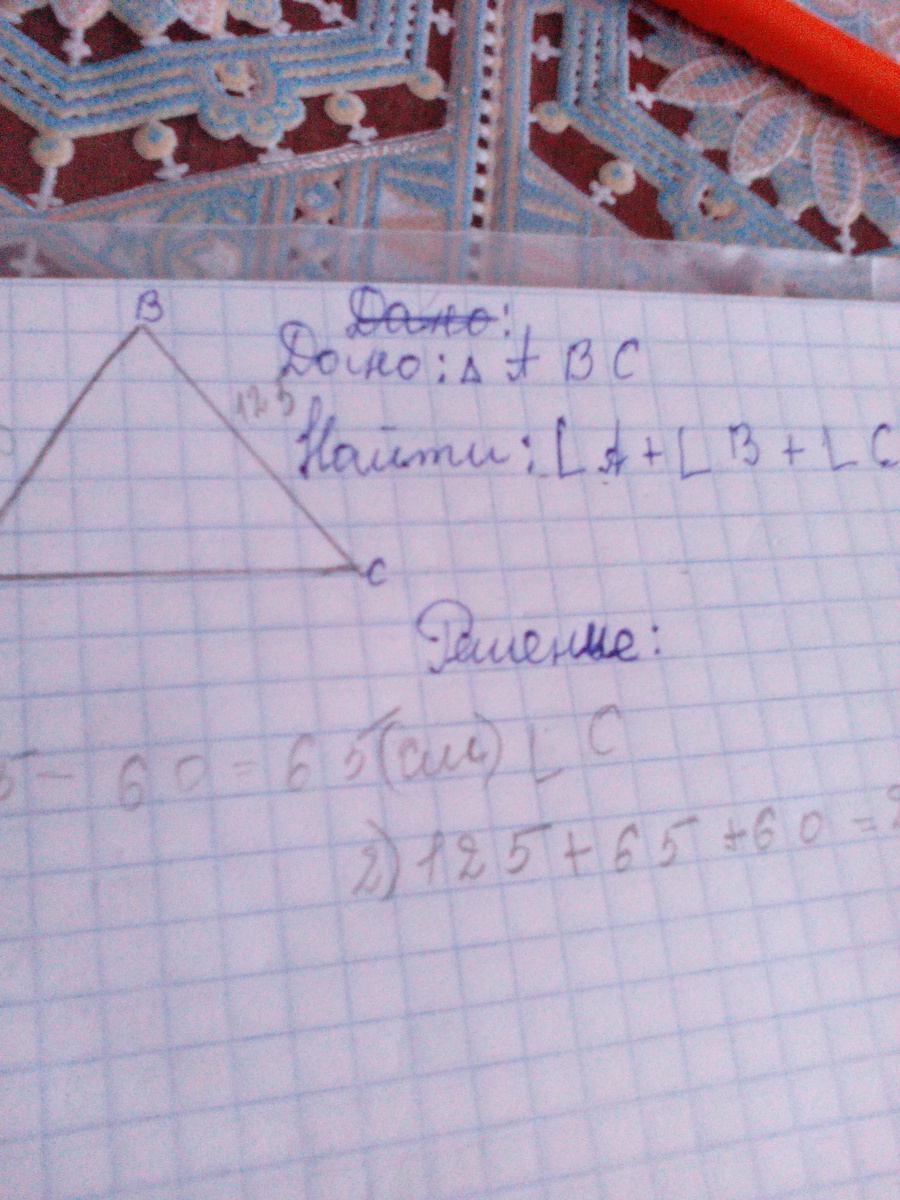 B
Дано:
Дано: Δ A B C
125
Найти: ∟A + ∟B + ∟C
C
Решение:
5 - 60 = 65(см) ∟C
2) 125 + 65 + 60 = 2